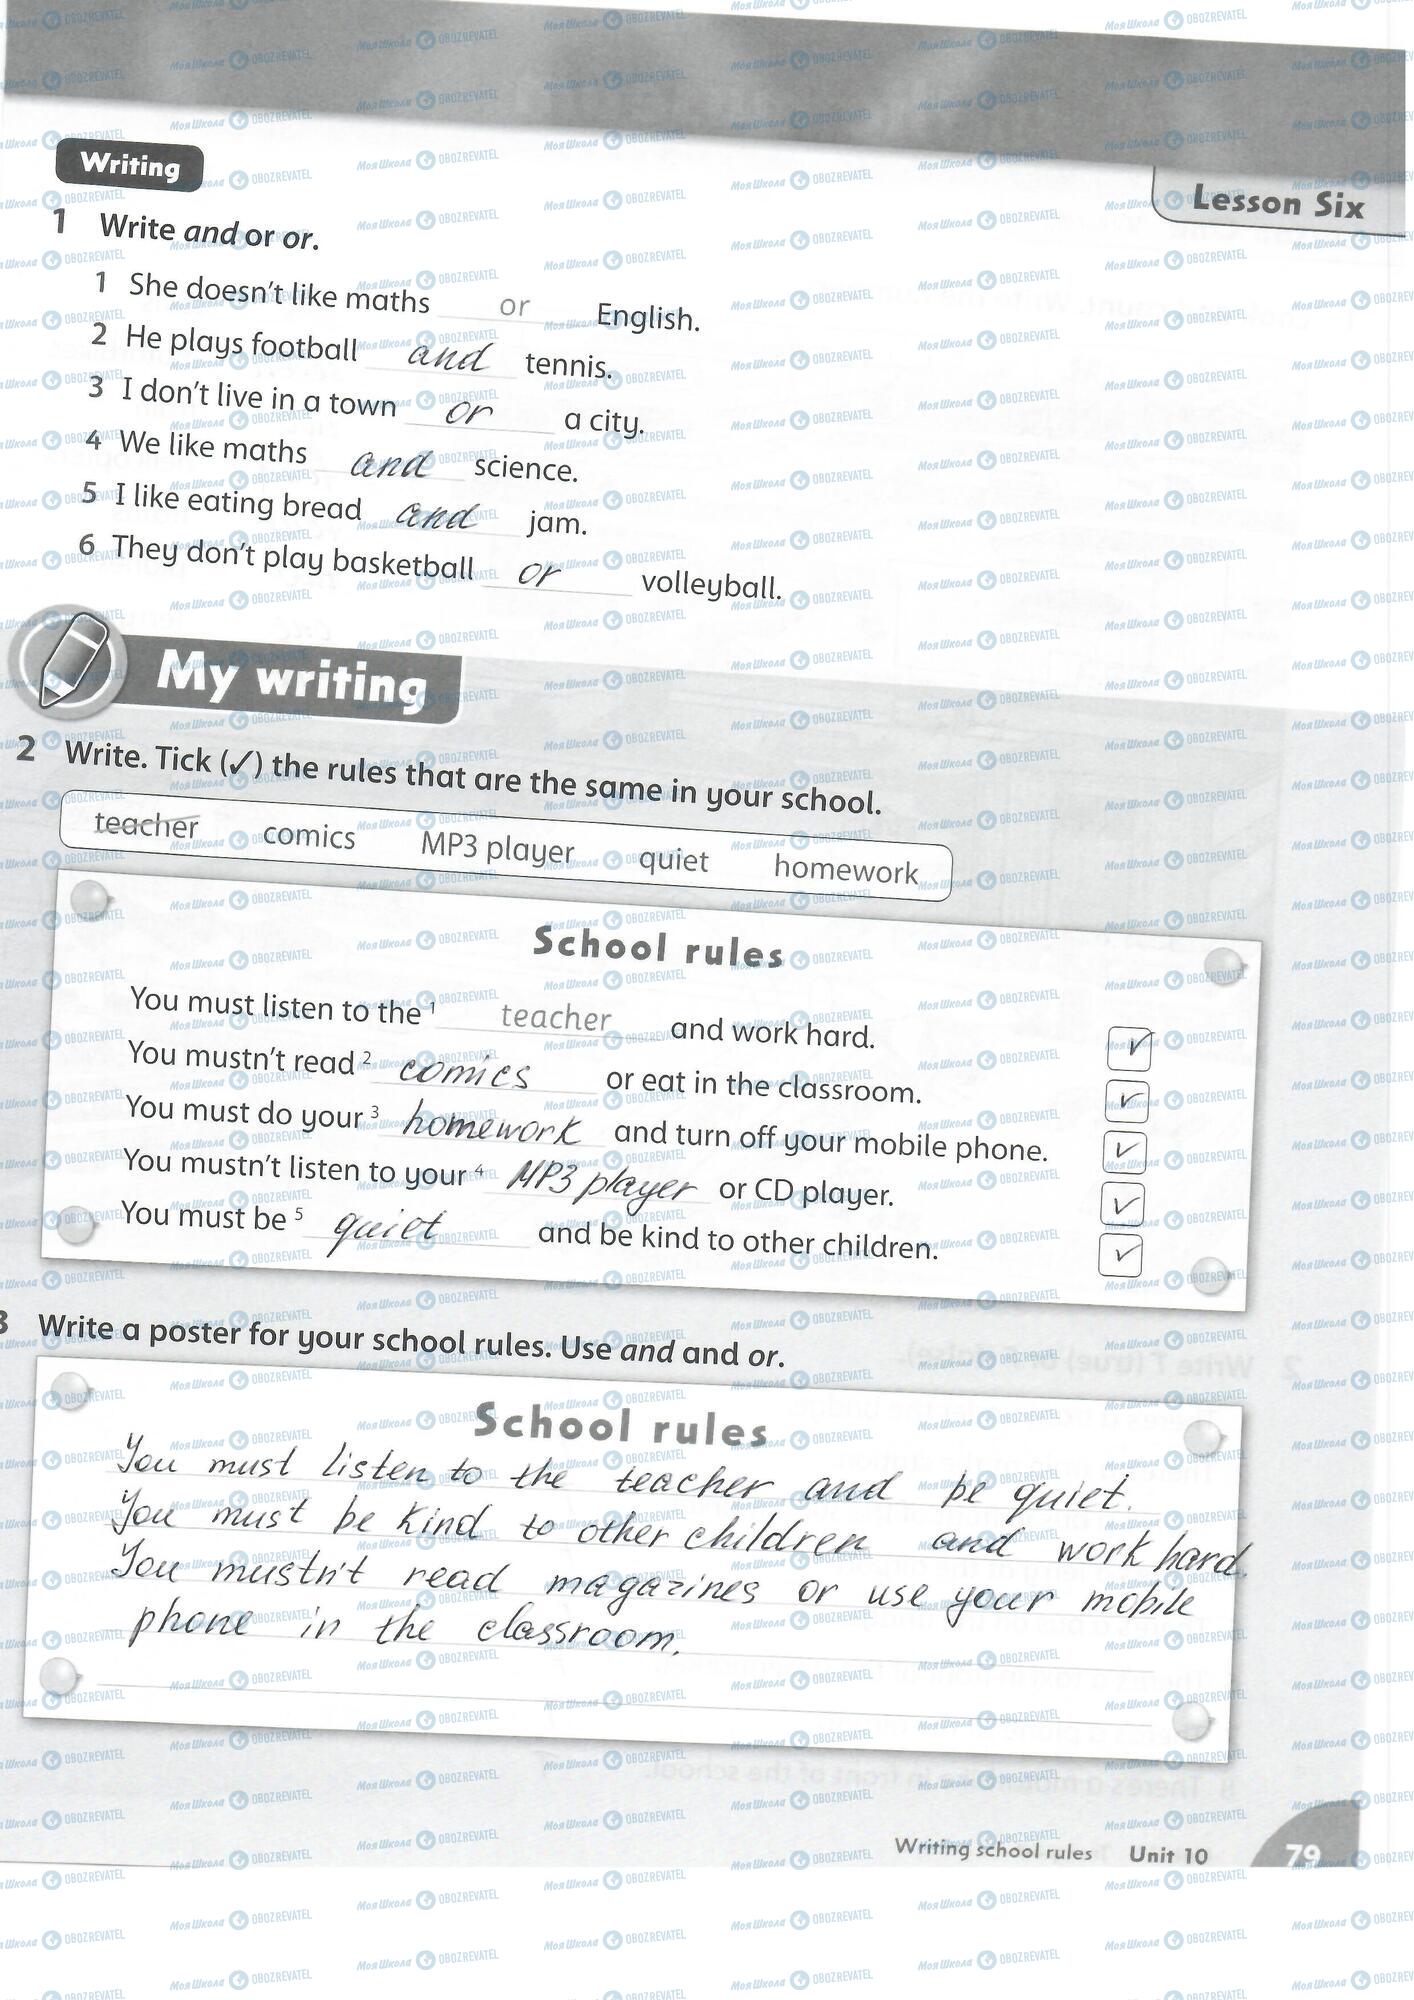 Writing
Lesson Six
1 Write and or or.
1 She doesn't like maths or English.
2 He plays football and tennis.
3 I don't live in a town or a city.
4 We like maths and science.
5 I like eating bread and jam.
6 They don't play basketball or volleyball.
My writing
2 Write. Tick (✓) the rules that are the same in your school.
teacher comics MP3 player quiet homework
School rules
You must listen to the 1 teacher and work hard. ✓
You mustn't read 2 comics or eat in the classroom. ✓
You must do your 3 homework and turn off your mobile phone. ✓
You mustn't listen to your 4 MP3 player or CD player. ✓
You must be 5 quiet and be kind to other children. ✓
3 Write a poster for your school rules. Use and and or.
School rules
You must listen to the teacher and be quiet.
You must be kind to other children and work hard.
You mustn't read magazines or use your mobile
phone in the classroom.
Writing school rules Unit 10 79
МояШкола OBOZREVATEL